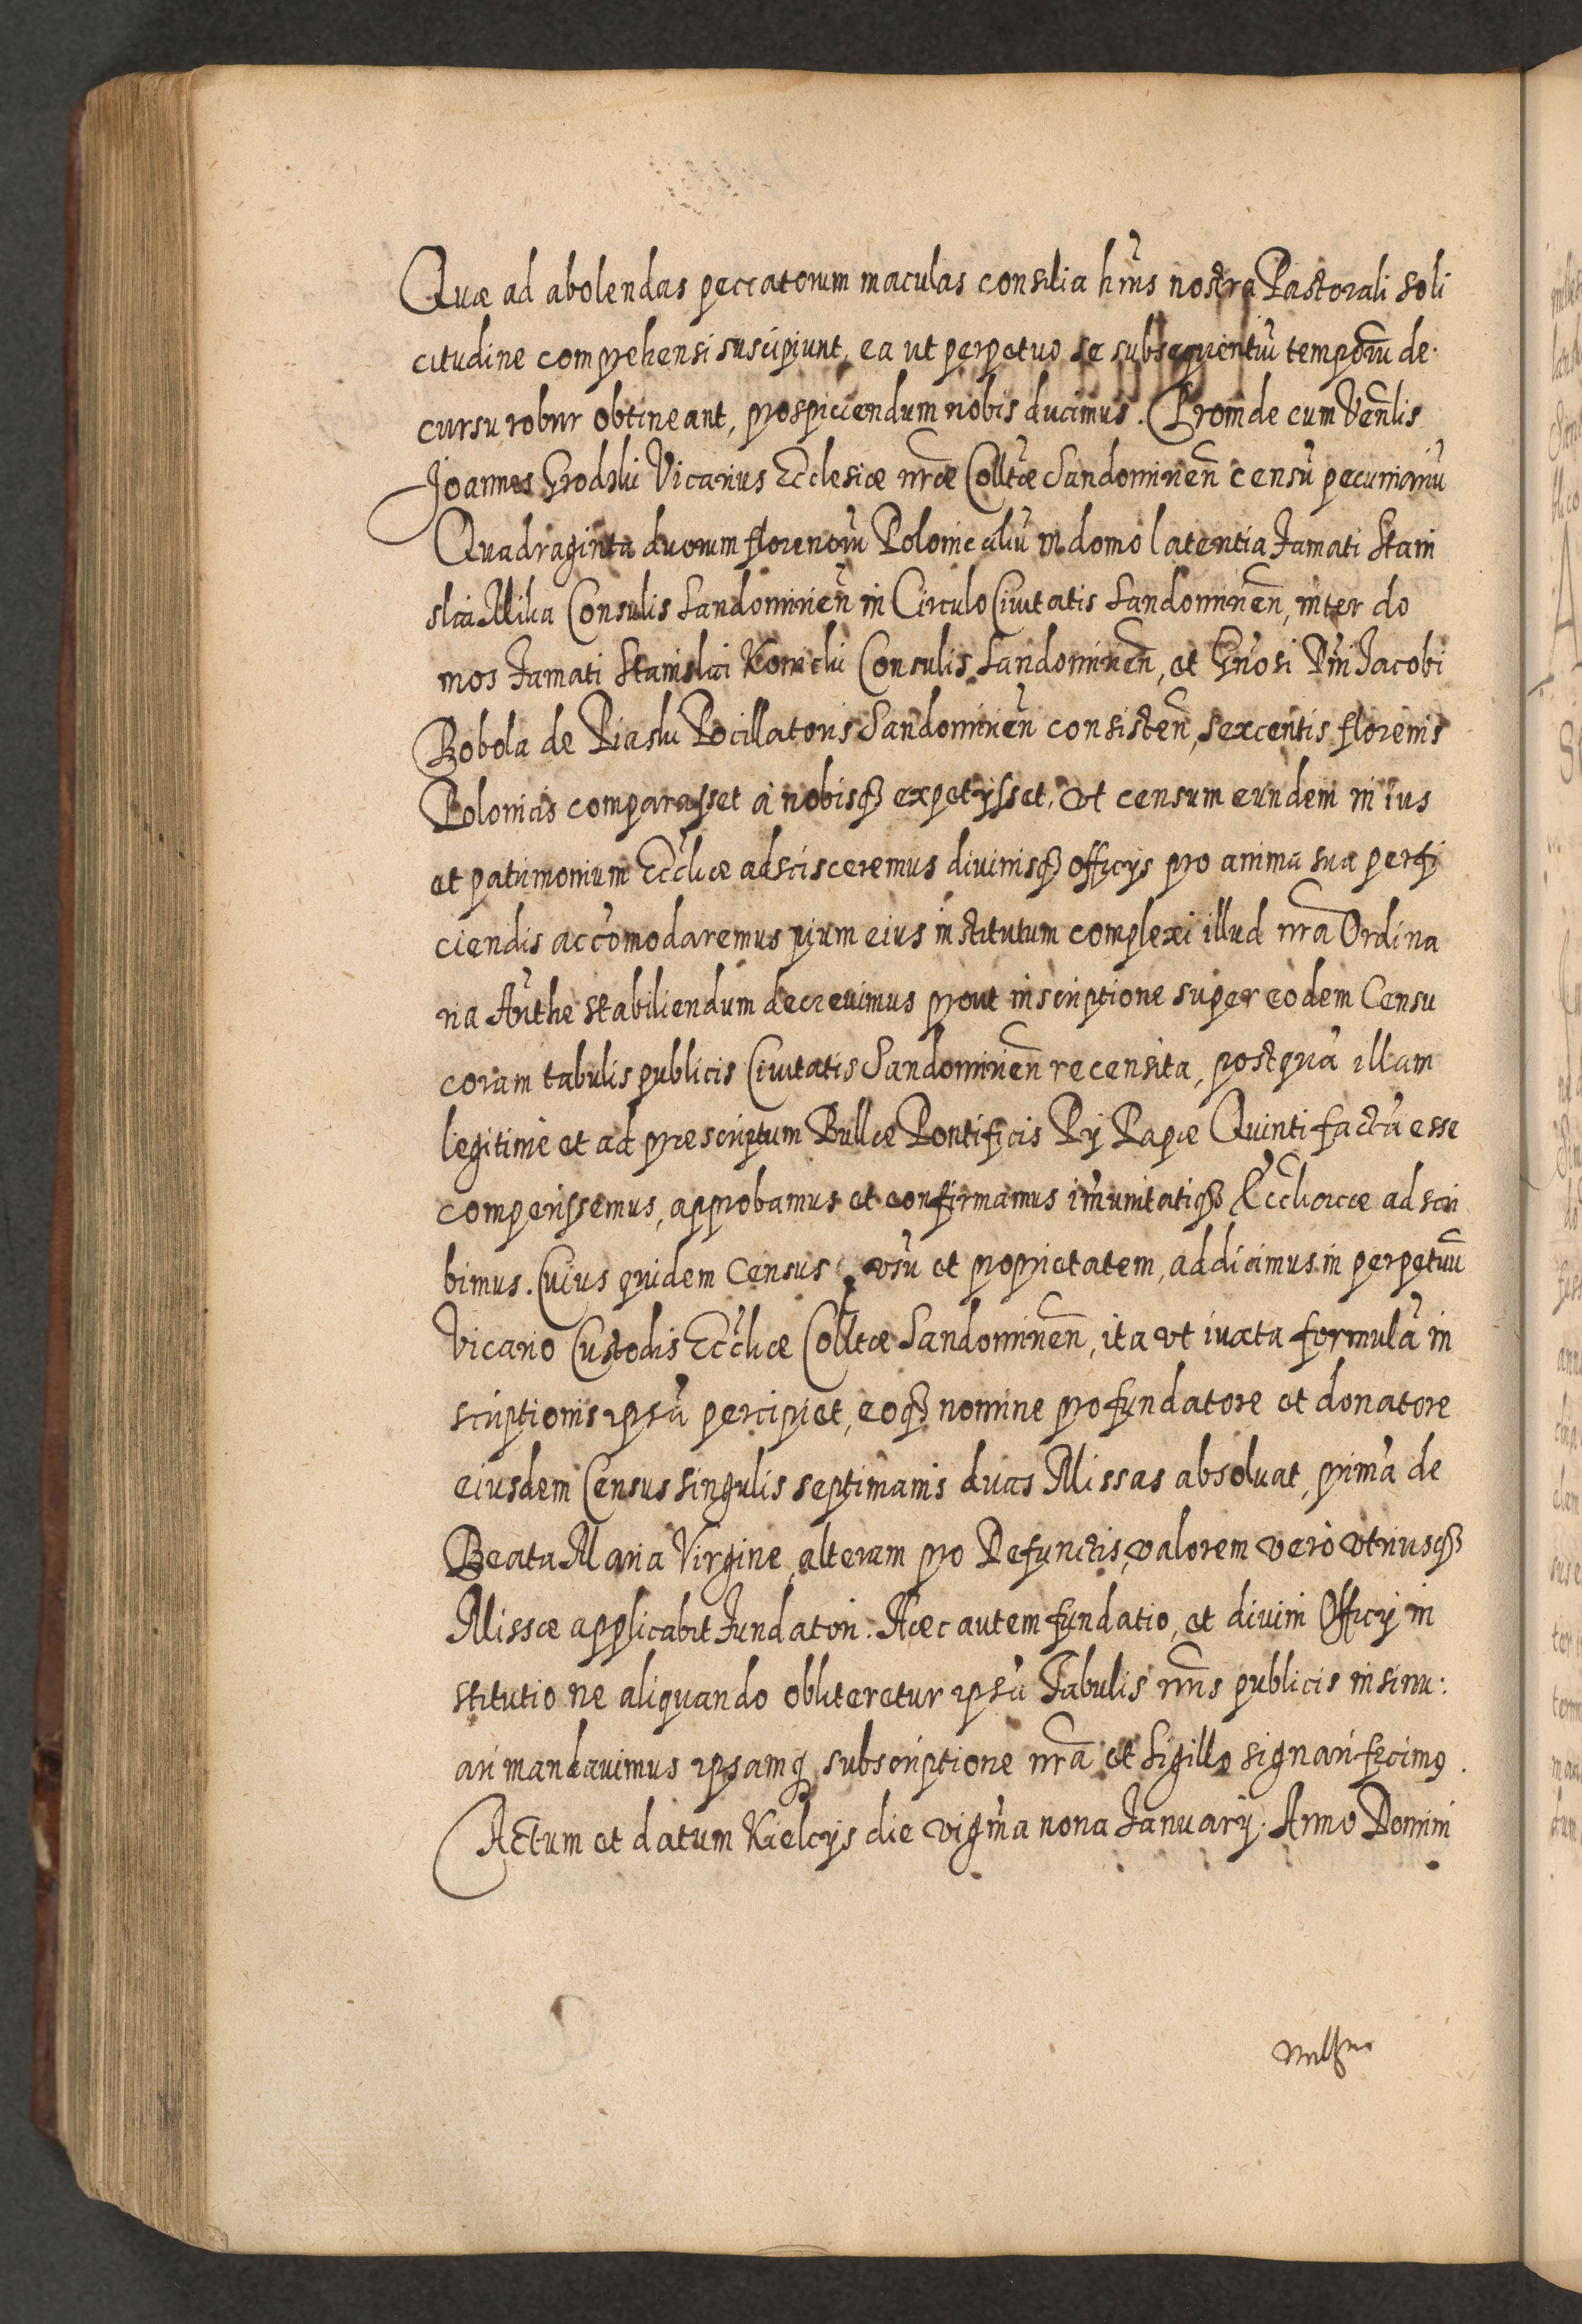 Quæ ad abolendas peccatorum maculas consilia hius nostra Pastorali soli
citudine comprehensi suscipiunt, ea ut perpetuo se subsequentiũ temporũ de.
cursu robur obtineant, prospiciendum nobis ducimus. Proinde cum Venlis
Joannes Grodzki Vicarius Ecclesiæ nræ Colltæ Sandomirien̄ censũ pecuniariũ
Quadraginta duorum florenorũ Polonicaliũ in domo latentia Famati Stani
slai Mika Consulis Sandomirien̄ in Circulo Ciuitatis Sandomirien̄, inter do
mos Famati Stanislai Consulis Sandomirien̄, et Gn̄osi Dn̄i Jacobi
Bobola de Piaski Pocillatoris Sandomirien̄ consisten̄, sexcentis florenis
Polonicis comparasset à nobisqȝ expetysset, vt censum eundem in ius
et patrimonium Ecclicæ adscisceremus diuinisqȝ officijs pro anima sua perfi
ciendis accõmodaremus pium eius institutum complexi illud nrã Ordina
ria Authe stabiliendum decreuimus prout inscriptione super eodem Censu
coram tabulis publicis Ciuitatis Sandomirien̄ recensita, postquã illam
legitimè et ad præscriptum Bullæ Pontificis Pij Papæ Quinti factã esse
comperissemus, approbamus et confirmamus im̃unitatiqȝ Eccliasticæ adscri
bimus. Cuius quidem Census vsũ et proprietatem, addicimus in perpetuũ
Vicario Custodis Eccliæ Colltæ Sandomirien̄, ita vt iuxta formulã in
scriptionis ipsũ percipiet, eoqȝ nomine pro fundatore et donatore
eiusdem Census singulis septimanis duas Missas absoluat, primã de
Beata Maria Virgine, alteram pro Defunctis, valorem verò vtriusqȝ
Missæ applicabit Fundatori. Hæc autem fundatio, et diuini Officij in
stitutio ne aliquando obliteretur ipsã Tabulis nris publicis insinu.
ari mandauimus ipsamq̃ subscriptione nrã et Sigillo signari fecimꝰ.
Actum et datum Kielcijs die vigm̃a nona Januarij. Anno Domini